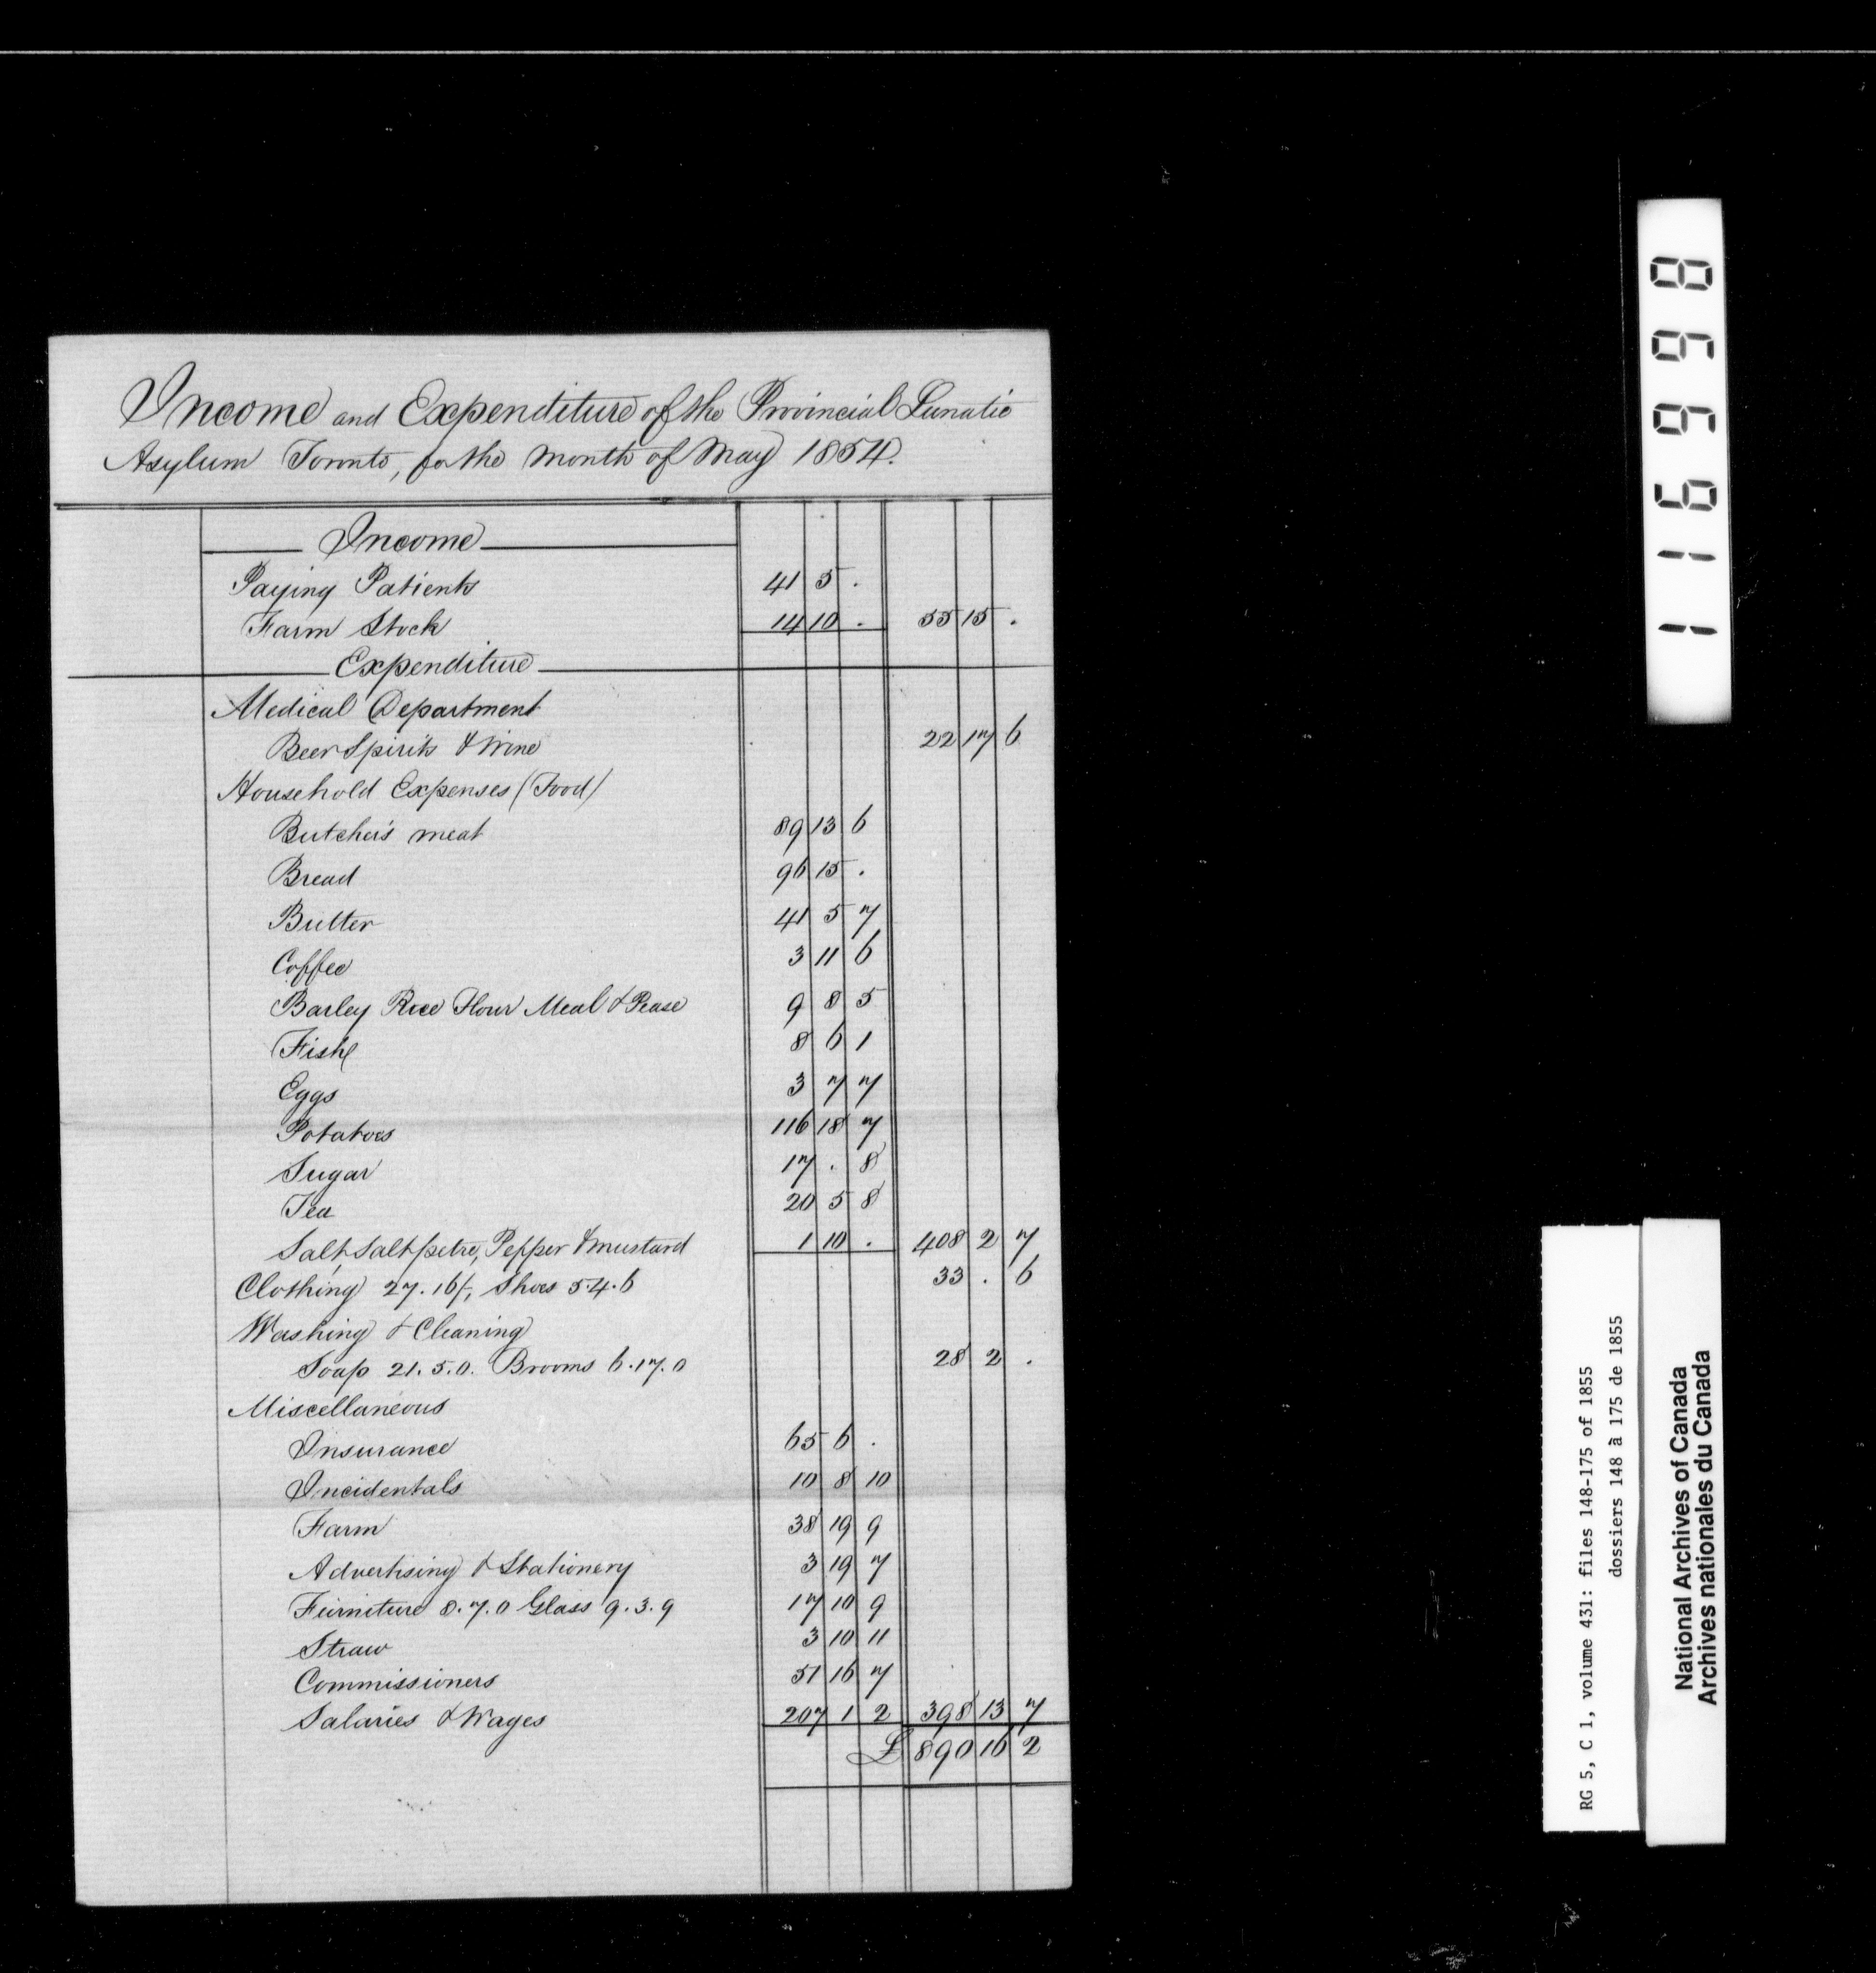 Income and Expenditure of the Provincial Lunatic
Asylum Toronto, for the month of May 1854.
Income
Paying Patients 41 5 .
Farm Stock 14 10 . 55 15 .
Expenditure
Medical Department
Beer Spirits & Wine 22 17 6
Household Expenses (Food)
Butcher's meat 89 13 6
Bread 96 15 .
Butter 41 5 7
Coffee 3 11 6
Barley Rice Flour Meal & Pease 9 8 5
Fish 8 6 1
Eggs 3 7 7
Potatoes 116 18 7
Sugar 17 . 8
Tea 20 5 8
Salt, Saltpetre, Pepper & mustard 1 10 . 408 2 7
Clothing 27.16/, Shoes 5.4.6 33 . 6
Washing & Cleaning
Soap 21.5.0. Brooms 6.17.0 28 2 .
Miscellaneous
Insurance 65 6 .
Incidentals 10 8 10
Farm 38 19 9
Advertising & Stationery 3 19 7
Furniture 8.7.0 Glass 9.3.9 17 10 9
Straw 3 10 11
Commissioners 51 16 7
Salaries & Wages 207 1 2 398 13 7
£ 890 16 2
116998
RG 5, C 1, volume 431: files 148-175 of 1855
dossiers 148 à 175 de 1855
National Archives of Canada
Archives nationales du Canada